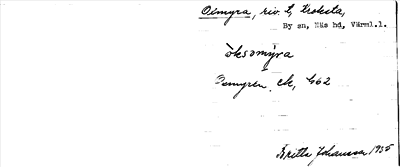 Oxmyra, riv. t. Kroksta,
By sn, Näs hd, Värml.l.
öksomýra
Oxmyren, ek, 462
Britta Johansson 1935